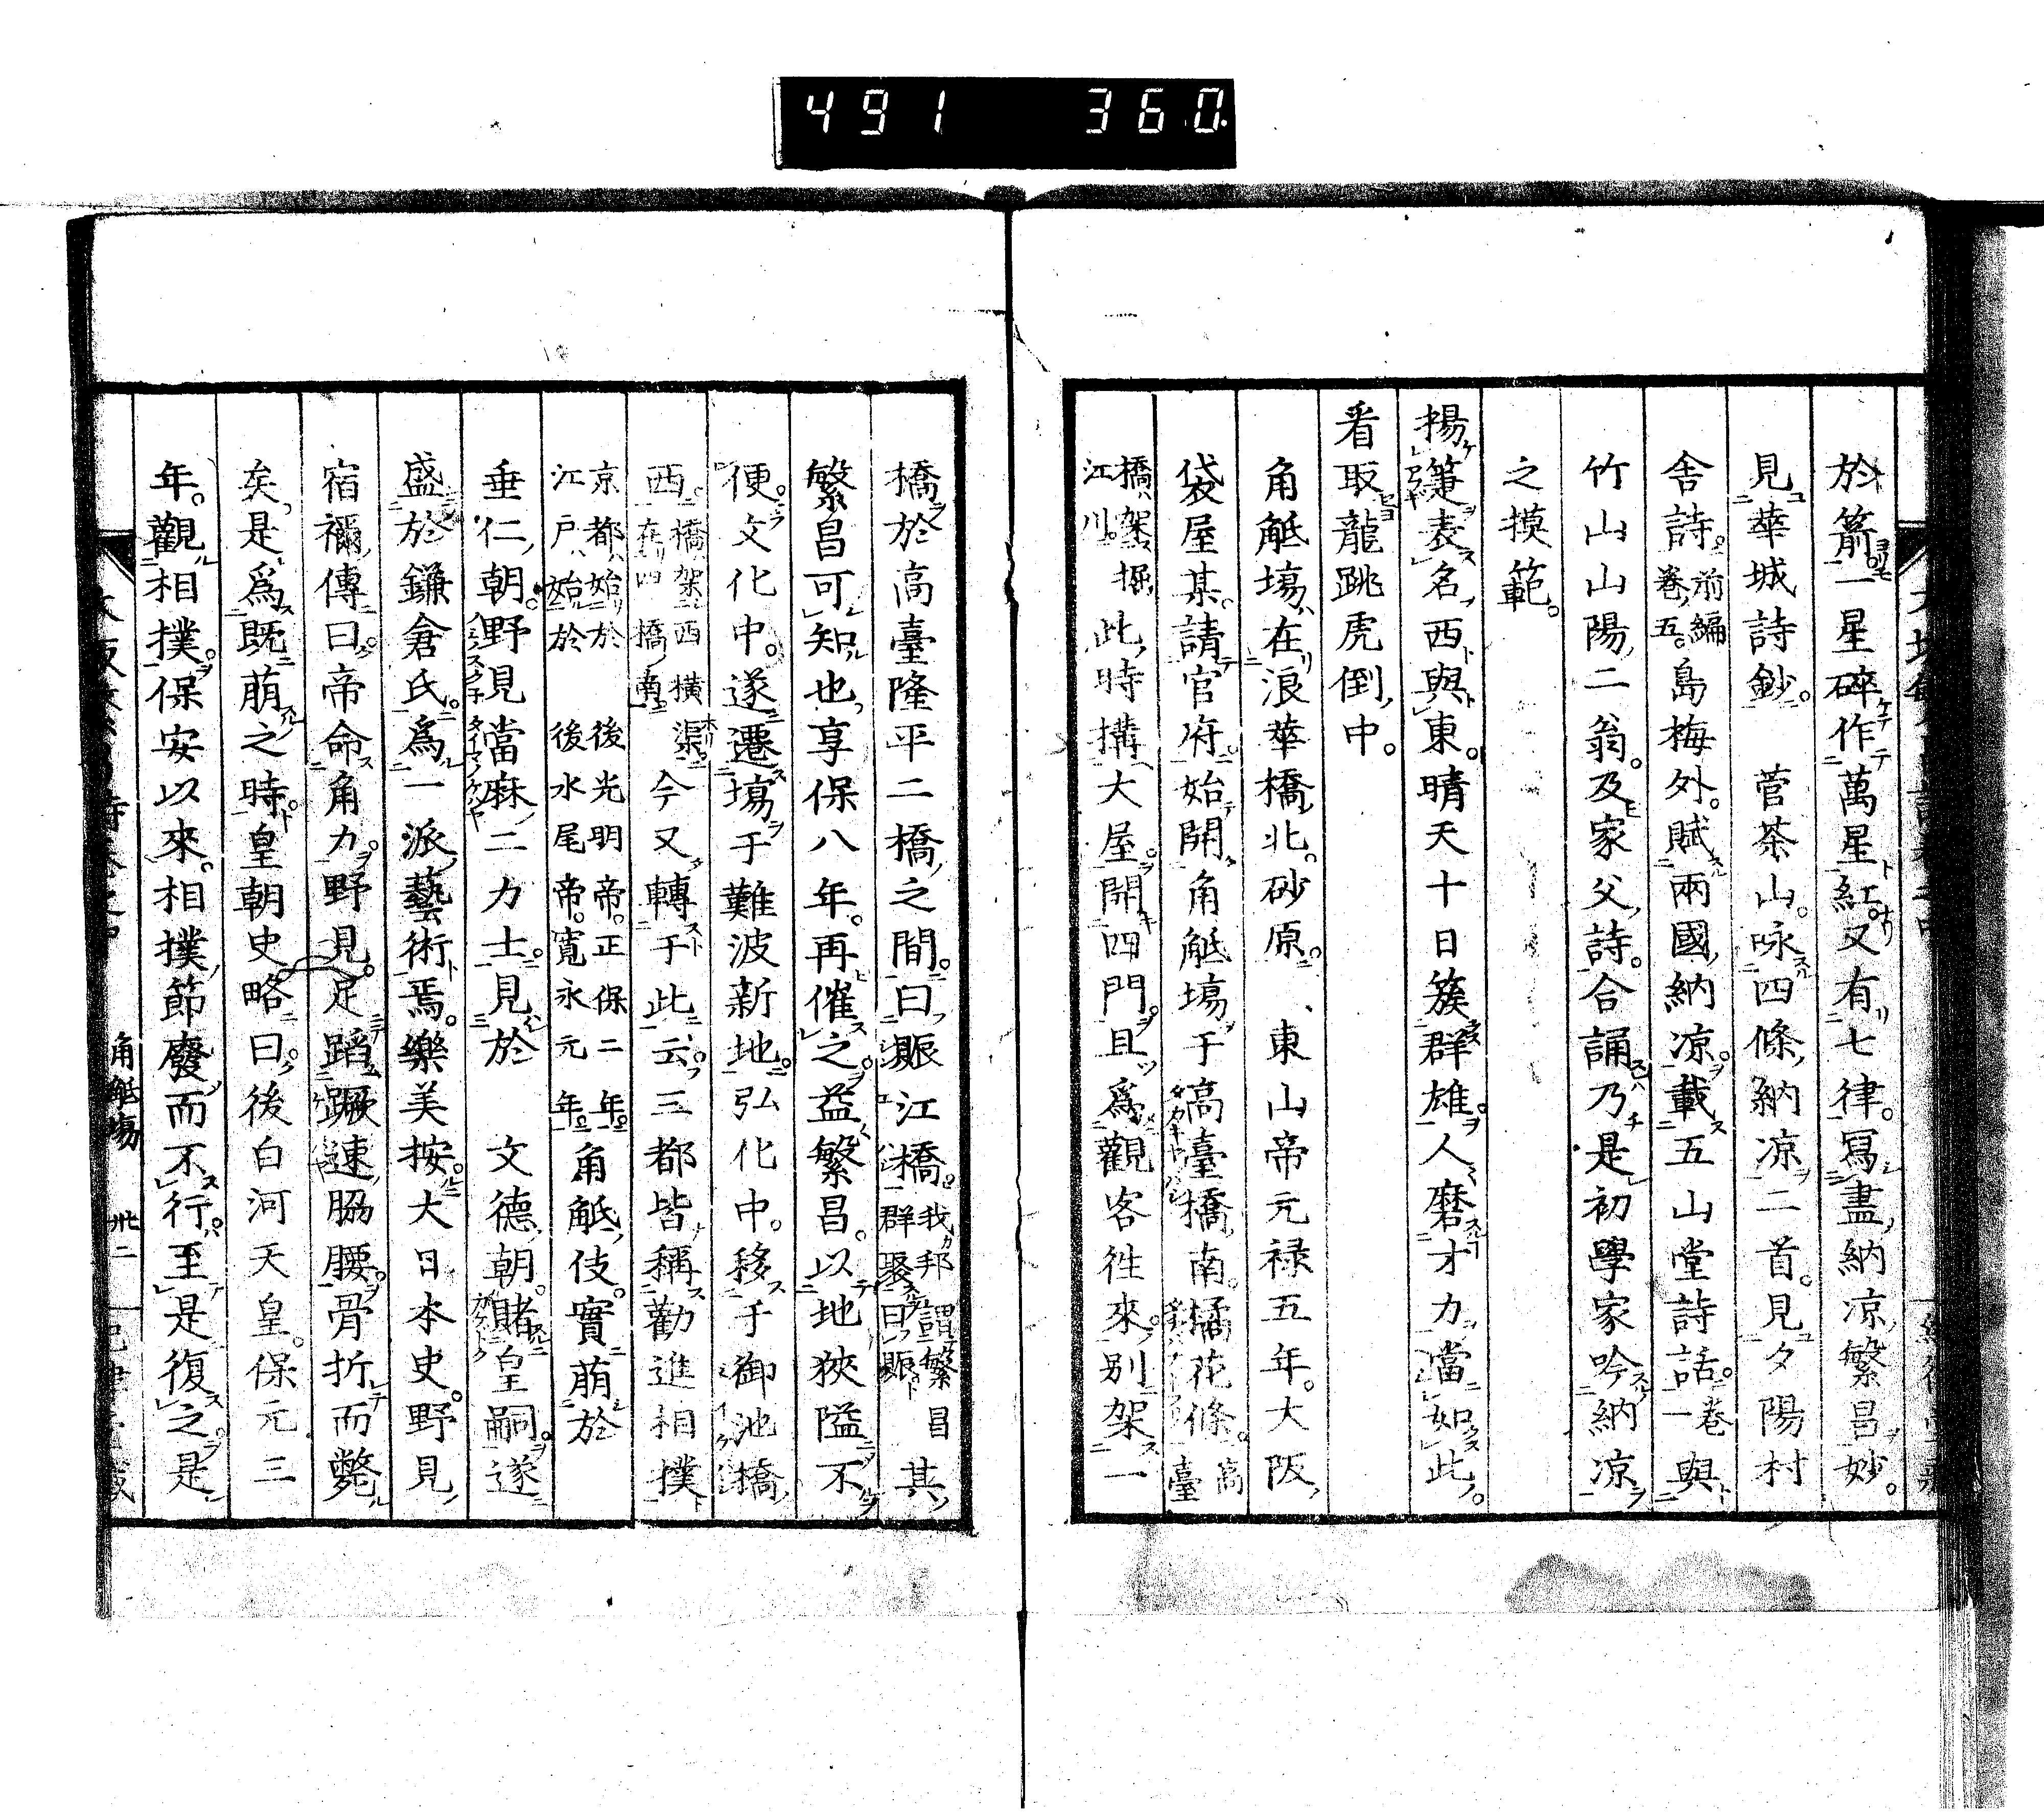 491 360
於箭一星碎作萬星紅又有七律寫盡納凉繁昌妙
見華城詩鈔 菅茶山咏四條納凉二首見夕陽村
舍詩前編卷五島梅外賦兩國納凉載五山堂詩話一卷與
竹山山陽二翁及家父詩合誦乃是初學家吟納凉
之摸範
揚箑表名西與東晴天十日簇群雄人磨才力當如此
看取龍跳虎倒中
角觝塲在浪華橋北砂原 東山帝元禄五年大阪
袋屋某請官府始開角觝塲于高臺橋南橘花條高臺
橋架掘江川此時搆大屋開四門且爲觀客徃來別架一
橋於高臺隆平二橋之間曰賑江橋我邦謂繁昌群聚曰賑其
繁昌可知也享保八年再催之益繁昌以地狹隘不
便文化中遂遷塲于難波新地弘化中移于御池橋
西橋架西横渠在四橋南今又轉于此云三都皆稱勸進相撲
京都始於後光明帝正保二年江戸始於後水尾帝寛永元年角觝伎實萠於
垂仁朝野見當麻二力士見於 文德朝賭皇嗣遂
盛於鎌倉氏爲一派藝術焉樂美按大日本史野見
宿禰傳曰帝命角力野見足蹈蹶速脇腰骨折而斃
矣是爲既萠之時皇朝史略曰後白河天皇保元三
年觀相撲保安以來相撲節廢而不行至是復之是
角觝塲 卅二